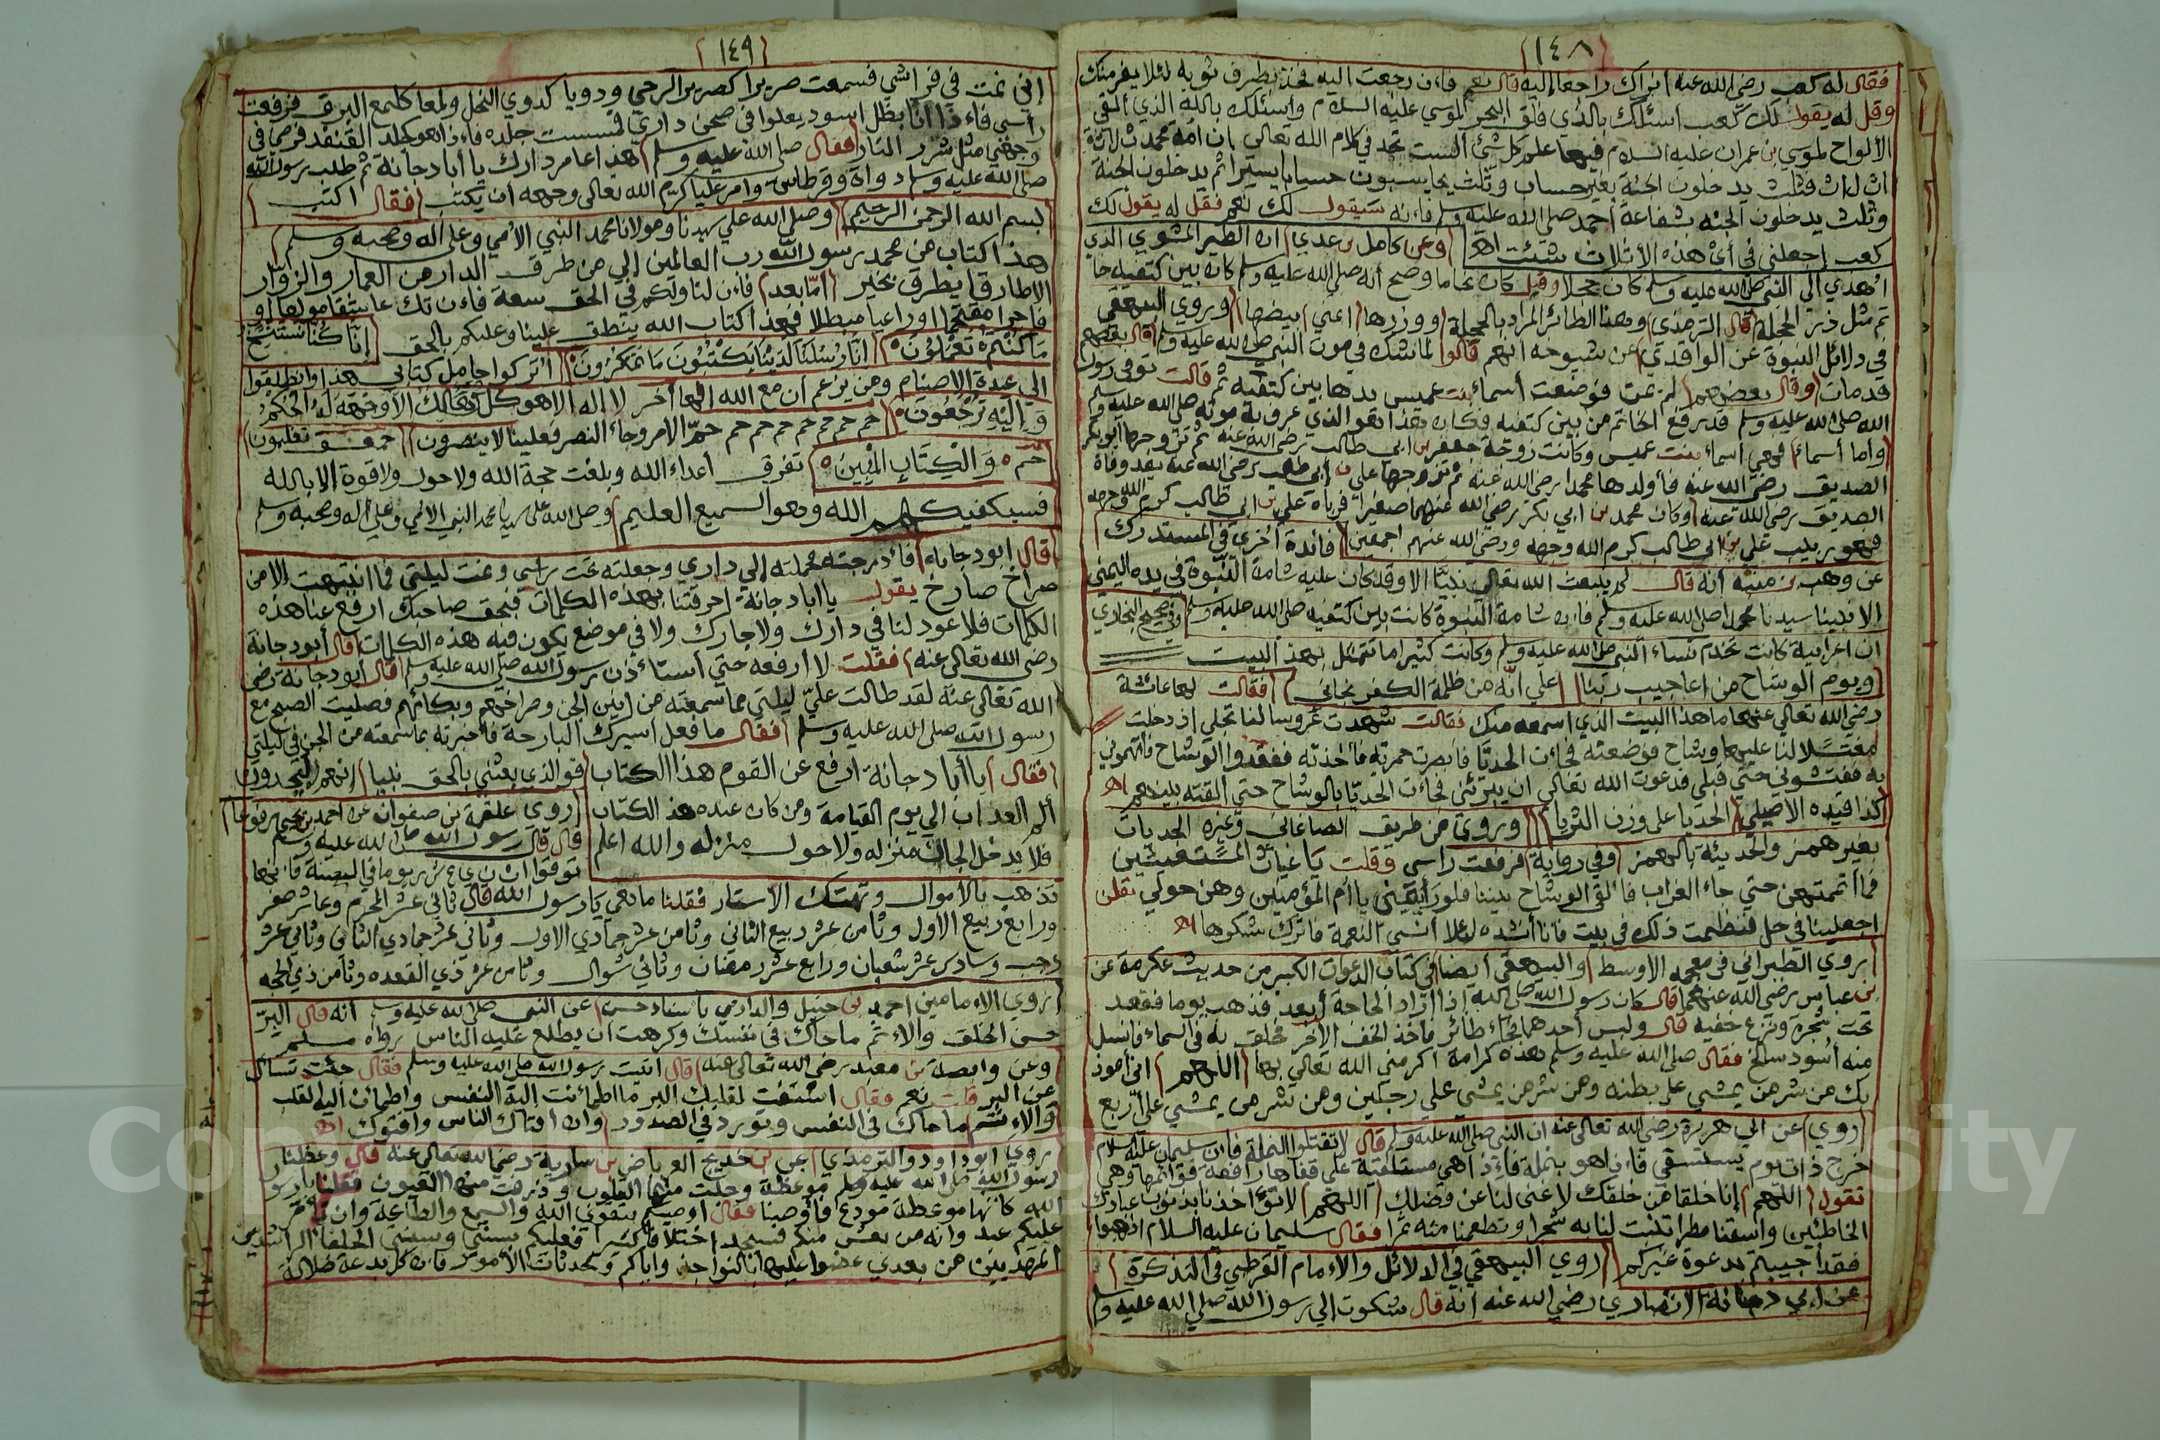 ١٤٨
فقال له كعب رضي الله عنه أتراك راجعا إليه قال نعم فاءن رجعت اليه فخذ بطرف ثوبه لئلا يفر منك
وقل له يقول لك كعب اسئلك بالذي فلق البحر لموسي عليه السلام واسئلك بالله الذي القي
الألواح لموسي بن عمران عليه السلام فيها علم كل شئ ألست تجد في كلام الله تعالي ان امة محمد ثلاثة
اثلاث فثلث يدخلون الجنة بغير حساب وثلث يحاسبون حسابا يسيرا ثم يدخلون الجنة
وثلث يدخلون الجنه بشفاعة احمد صلي الله عليه وسلم فاءنه سيقول لك نعم فقل له يقول لك
كعب اجعلني في أي هذه الأثلاث شئت اه وعن كامل بن عدي ان الطير المشوي الذي
اهدي الي النبي صلي الله عليه وسلم كان حجلا وقيل كان نحاما وصح أنه صلي الله عليه وسلم كان بين كتفيه خا
تم مثل زر الحجلة قال الترمذي وهذا الطائر المراد بالحجلة ووزرها اعني بيضها وروي البيهقي
في دلائل النبوة عن الواقدي عن شيوخه انهم قالوا لما شك في موت النبي صلي الله عليه وسلم قال بعضهم
قد مات وقال بعضهم لم يمت فوضعت أسماء بنت عميس يدها بين كتفيه ثم قالت توفي رسول
الله صلي الله عليه وسلم قد رفع الخاتم من بين كتفيه فكان هذا هو الذي عرف به موته صلي الله عليه وسلم
وأما أسماء فهي أسماء بنت عميس وكانت زوجة جعفر بن ابي طالب رضي الله عنه ثم تزوجها أبو بكر
الصديق رضي الله عنه فأولدها محمدا رضي الله عنه ثم تزوجها علي بن أبي طالب رضي الله عنه بعد وفاة
الصديق رضي الله عنه وكان محمد بن ابي بكر رضي الله عنهما صغيرا فرباه علي بن ابي طالب كرم الله وجهه
فهو ربيب علي بن ابي طالب كرم الله وجهه ورضي الله عنهم اجمعين فائدة أخري في المستدرك
عن وهب بن منبه أنه قال لم يبعث الله تعالي نبيا الا وقد كان عليه شامة النبوة في يده اليمني
الا نبينا سيدنا محمدا صلي الله عليه وسلم فان شامة النبوة كانت بين كتفيه صلي الله عليه وسلم وفي صحيح البخاري
ان اعرابية كانت تخدم نساء النبي صلي الله عليه وسلم وكانت كثيرا ما تتمثل بهذ البيت
ويوم الوشاح من اعاجيب ربنا علي انه من ظلمة الكفر نجاني فقالت لها عائشة
رضي الله تعالي عنها ما هذا البيت الذي اسمعه منك فقالت شهدت عروسا لنا تجلي اذ دخلت
مغتسلا لنا عليها وشاح فوضعته فجاءت الحديا فابصرت حمرته فأخذته ففقدوا الوشاح فاتهموني
به ففتشوني حتي قبلي فدعوت الله تعالي ان يبرئني فجاءت الحديا بالوشاح حتي القته بينهم اه
كذا قيده الأصيلي الحديا علي وزن الثريا وروي من طريق الصاغاني وغيره الحديات
بغير همز والحديئة بالهمز وفي رواية فرفعت راسي وقلت يا غياث المستغيثين
فما اتممتهن حتي جاء الغراب فالقي الوشاح بيننا فلو رأيتيني يا أم المؤمنين وهن حولي يقلن
اجعلينا في حل فنظمت ذلك في بيت فانا أنشده لئلا أنسي النعمة فاترك شكرها اه
روي الطبراني في معجمه الأوسط والبيهقي ايضا في كتاب الدعوات الكبير من حديث عكرمة عن
بن عباس رضي الله عنهما قال كان رسول الله صلي الله اذا أراد الحاجة أبعد فذهب يوما فقعد
تحت شجرة ونزع خفيه قال ولبس أحدهما فجاء طائر فأخذ الخف الأخر فحلق به في السماء فانسل
منه أسود سالخ فقال صلي الله عليه وسلم هذه كرامة اكرمني الله تعالي بها اللهم اني أعوذ
بك من شر من يمشي علي بطنه ومن شر من يمشي علي رجلين ومن شر من يمشي علي أربع
روي عن ابي هريرة رضي الله تعالي عنه ان النبي صلي الله عليه وسلم قال لا تقتلوا النملة فان سليمان عليه السلام
خرج ذات يوم يستسقي فاءذا هو بنملة مستلقية علي قفاها رافعة قوائمها وهي
تقول اللهم إنا خلقا من خلقك لا غني لنا عن فضلك اللهم لا تؤاخذنا بذنوب عبادك
الخاطئين واسقنا مطرا تنبت لنا به شجرا وتطعمنا منه ثمرا فقال سليمان عليه السلام اذهبوا
فقد أجيبتم بدعوة غيركم روي البيهقي في الدلائل والاءمام القرطبي في التذكرة
عن ابي دجانة الانصاري رضي الله عنه أنه قال شكوت الي رسول الله صلي الله عليه وسلم
١٤٩
إني نمت في فراشي فسمعت صريرا كصرير الرحي ودويا كدوي النحل ولمعا كلمع البرق فرفعت
رأسي فاءذا انا بظل اسود يعلوا في صحن داري فمسست جلده فاءذا هو كجلد القنفد فرمي في
وجهي مثل شرر النار فقال صلي الله عليه وسلم هذا عامر دارك يا أبا دجانة ثم طلب رسول الله
صلي الله عليه وسلم دواة وقرطاس وامر عليا كرم الله تعالي وجهه أن يكتب فقال اكتب
بسم الله الرحمن الرحيم وصلي الله علي سيدنا ومولانا محمد النبي الأمي وعلي اله وصحبه وسلم
هذا كتاب من محمد رسول الله رب العالمين إلي من طرق الدار من العمار والزوار
الا طارقا يطرق بخير أمّا بعد فاءن لنا ولكم في الحق سعة فاءن تك عاشقا مولعا او
فاجرا مقتحما اوراعيا مبطلا فهذا كتاب الله ينطق علينا وعليكم بالحق إنا كنا نستنسخ
ما كنتم تعملون إن رسلنا لدينا يكتبون ما تمكرون اتركوا حامل كتابي هذا وانطلقوا
إلي عبدة الاصنام ومن يزعم أن مع الله الها أخر لا اله الا هو كل شئ هالك الا وجهه له الحكم
وإليه ترجعون حم حم حم حم حم حم حم حمّ الامر وجاء النصر فعلينا لا ينصرون حمعسق تغلبون
حم والكتاب المبين تفرق أعداء الله وبلغت حجة الله ولا حول ولا قوة الا بالله
فسيكفيكهم الله وهو السميع العليم وصلي الله علي سيدنا محمد النبي الأمي وعلي أله وصحبه وسلم
قال ابو دجانة فأدرجته فحملته إلي داري وجعلته تحت راسي ونمت ليلتي فما انتبهت الا من
صراخ صارخ يقول يا ابا دجانة احرقتنا بهذه الكلمات فبحق صاحبك ارفع عنا هذه
الكلمات فلا عود لنا في دارك ولا جارك ولا في موضع يكون فيه هذه الكلمات قال أبو دجانة
رضي الله تعالي عنه فقلت لا أرفعه حتي أستاءذن رسول الله صلي الله عليه وسلم قال ابو دجانة رضي
الله تعالي عنه لقد طالت عليّ ليلتي مما سمعته من انين الجن وصراخهم وبكائهم فصليت الصبح مع
رسول الله صلي الله عليه وسلم فقال ما فعل أسيرك البارحة فأخبرته بما سمعته من الجن في ليلتي
فقال يا أبا دجانة ارفع عن القوم هذا الكتاب فو الذي بعثني بالحق نبيا إنهم ليجدون
ألم العذاب الي يوم القيامة ومن كان عنده هذ الكتاب
فلا يدخل الجان منزله ولا حول منزله والله اعلم
روي علقمة بن صفوان عن احمد بن يحيي مرفوعا
قال قال رسول الله صلي الله عليه وسلم
توقوا اثني عشر يوما في السنة فانها
تذهب بالأموال وتهتك الأستار فقلنا ما هي يا رسول الله قال ثاني عشر المحرم وعاشر صفر
ورابع ربيع الأول وثامن عشر ربيع الثاني وثامن عشر جمادي الاول وثاني عشر جمادي الثاني وثاني عشر
رجب وسادس عشر شعبان ورابع عشر رمضان وثاني شوال وثامن عشر ذي القعده وثامن ذي الحجه
روي الاءمامين احمد بن حنبل والدارمي باسناد حسن عن النبي صلي الله عليه وسلم أنه قال البرّ
حسن الخلق والاءثم ما حاك في نفسك وكرهت أن يطلع عليه الناس رواه مسلم
وعن وابصة بن معبد رضي الله تعالي عنه قال أتيت رسول الله صلي الله عليه وسلم فقال جئت تسأل
عن البر قلت نعم فقال استفت لقلبك البر ما اطمأنت إليه النفس واطمأن اليه القلب
والاءثم ما حاك في النفس وتردد في الصدور وان افتاك الناس وأفتوك اه
روي ابو داود والترمذي عن العرباض بن سارية رضي الله تعالي عنه قال وعظنا
رسول الله صلي الله عليه وسلم موعظة وجلت منها القلوب وذرفت منها العيون فقلنا يا رسول
الله كأنها موعظة مودع فأوصينا فقال أوصيكم بتقوي الله والسمع والطاعة وان تأمر
عليكم عبد وانه من يعش منكم فسيجد اختلافا كثيرا فعليكم بسنتي وسنة الخلفاء الراشدين
المهديين من بعدي عضوا عليها بالنواجذ واياكم ومحدثات الأمور فان كل بدعة ضلالة